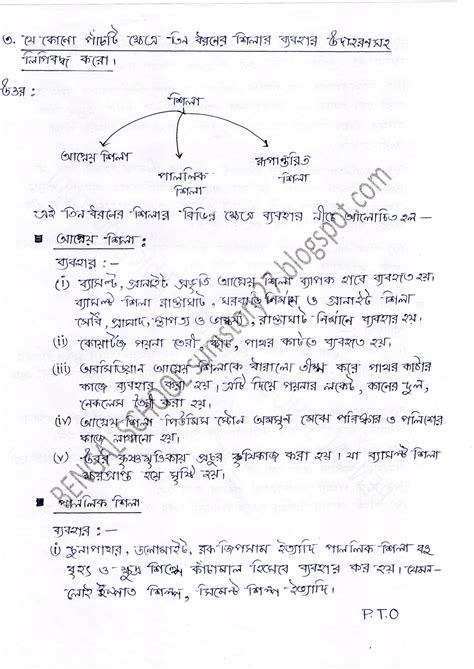 ৩. যে কোনো পাঁচটি ক্ষেত্রে তিন ধরনের শিলার ব্যবহার উদাহরনসহ
লিপিবদ্ধ করো।
উত্তর :
শিলা
আগ্নেয় শিলা
পাললিক
শিলা
রূপান্তরিত
শিলা
এই তিন ধরনের শিলার বিভিন্ন ক্ষেত্রে ব্যবহার নীচে আলোচিত হল —
আগ্নেয় শিলা :
ব্যবহার : —
(i) ব্যাসল্ট, গ্রানাইট প্রভৃতি আগ্নেয় শিলা ব্যাপক হারে ব্যবহৃত হয়।
ব্যাসল্ট শিলা রাস্তাঘাট, ঘরবাড়ি নির্মানে ও গ্রানাইট শিলা
সৌধ, প্রাসাদ, স্থাপত্য ও ভাস্কর্য, রাস্তাঘাট নির্মানে ব্যবহার হয়।
(ii) কোয়ার্টজ গয়না তৈরী, কাঁচ, পাথর কাটতে ব্যবহৃত হয়।
(iii) অবসিডিয়ান আগ্নেয় শিলাকে ধারালো তীক্ষ্ণ করে পাথর কাটার
কাজে ব্যবহার করা হয়। এটি দিয়ে গয়নার লকেট, কানের দুল,
নেকলেস তৈরী করা হয়।
(iv) আগ্নেয় শিলা পিউমিস স্টোন অমসৃন মেঝে পরিষ্কার ও পলিশের
কাজে লাগানো হয়।
(v) উর্বর কৃষ্ণমৃত্তিকায় প্রচুর কৃষিকাজ করা হয়। যা ব্যাসল্ট শিলা
ক্ষয়প্রাপ্ত হয়ে সৃষ্টি হয়।
পাললিক শিলা
ব্যবহার : —
(i) চুনাপাথর, ডলোমাইট, রক জিপসাম ইত্যাদি পাললিক শিলা বহু
বৃহৎ ও ক্ষুদ্র শিল্পে কাঁচামাল হিসেবে ব্যবহার কর হয়। যেমন-
লোহ ইস্পাত শিল্প, সিমেন্ট শিল্প ইত্যাদি।
P.T.O